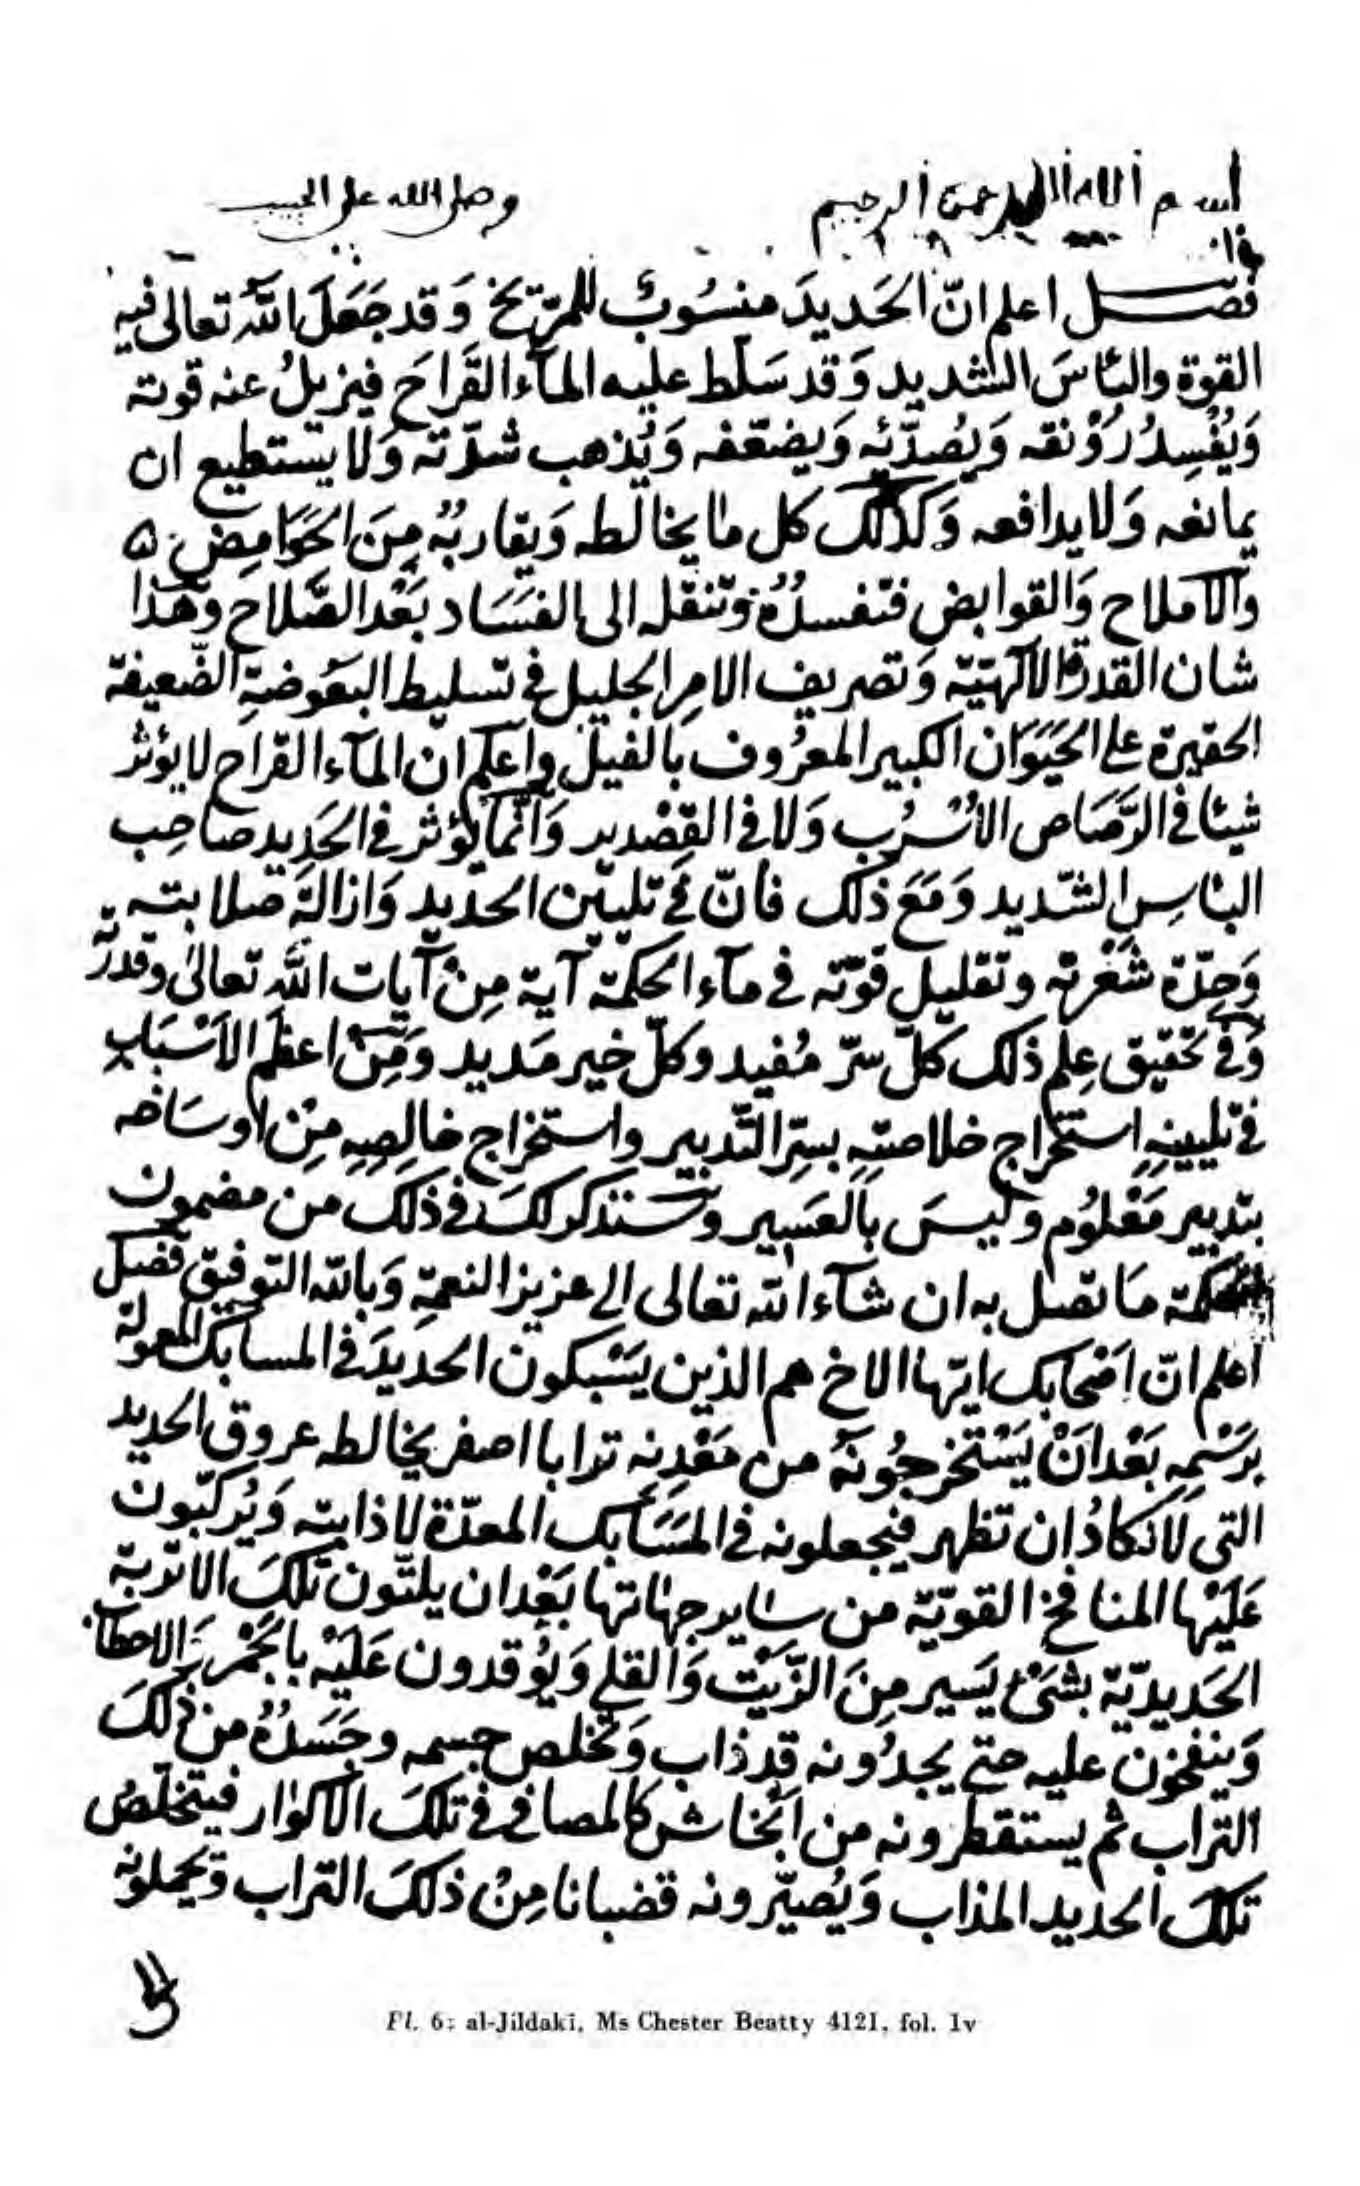 بسم الله الرحمن الرحيم وصلى الله على الحبيب
فصل اعلم انّ الحَديدَ منسُوبٌ للمرّيخ وَقد جَعَلَ اللّٰه تعالى فيه
القوة والبَأسَ الشديد وَقد سَلّط عليه المآء القَراحَ فيزيلُ عنه قوته
وَيُفْسِدُ رَوْنقه وَيُصدّئه وَيضعّفه وَيُذهب شدّته وَلا يستطيع ان
يمانعه وَلا يدافعه وَكذلك كل ما يخالطه وَيقاربُهُ مِنَ الحَوَامِضِ
والاملاح وَالقوابضِ فتفسدُهُ وَتنقله الى الفسَاد بَعْد الصَّلاح وهَذا
شان القدرة الالٓهيّة وَتصريف الامرِ الجليل في تسليط البعَوضةِ الضّعيفة
الحقيرة على الحَيَوَان الكبير المعرُوف بالفيل واعلم ان المآء القراح لا يؤثر
شيئا في الرَّصَاص الأسْرُب وَلا في القِصْدير وَانّما يؤثر في الحَديد صاحِب
البأسِ الشّديد وَمَعَ ذلك فانّ في تليين الحديد وَازالة صلابته
وَحِدّة شَعْرته وتقليل قوّته في مآء الحكمة آية مِنْ آيات اللّٰه تعالىٰ وقدرته
وَفي تحقيق عِلم ذلك كلّ سرّ مُفيد وكلّ خير مَديد وَمِنْ اعظَم الأسْبَاب
في تليينهِ استخراج خلاصتهِ بسرِّ التّدبير واستخراج خالِصِهِ مِنْ اوسَاخه
بتدبير مَعْلُوم وليسَ بالعَسِير وسَنذكر لكَ في ذلك من مضمون
الحكمة مَا تصل به ان شآء اللّٰه تعالى الى عزيز النعمةِ وَباللّٰه التوفيق فصل
اعلم انّ اصْحابك ايّها الاخ هم الذين يَسْبكون الحديدَ في المسابك المعمولة
برَسْمِهِ بَعْد انْ يَسْتخرجُونَهُ من مَعْدِنِه ترابا اصفر يخالطه عروق الحديد
التي لا تكادُ ان تظهر فيجعلونه في المسَابك المعدّة لاذابتِه وَيُركّبون
عَلَيْها المنافخ القويّة من ساير جهاتها بَعْد ان يلتّون تلكَ الاتربة
الحَديديّة بشَئ يَسير مِنَ الزّيْت وَالقلي وَيُوقدون عَلَيْه بالجَمْر وَالاحطاب
وَينفخون عليه حتى يجدُونه قد ذاب وَتخلص جسمه وجَسَدُهُ من ذلكَ
التراب ثم يستقطرونه من انخاش كالمصافى في تلكَ الاكوار فيتخلّصُ
تلكَ الحديد المذاب وَيُصيّرونه قضبانا مِنْ ذلكَ التراب وَيحملونه
Pl. 6: al-Jildakī, Ms Chester Beatty 4121, fol. 1v